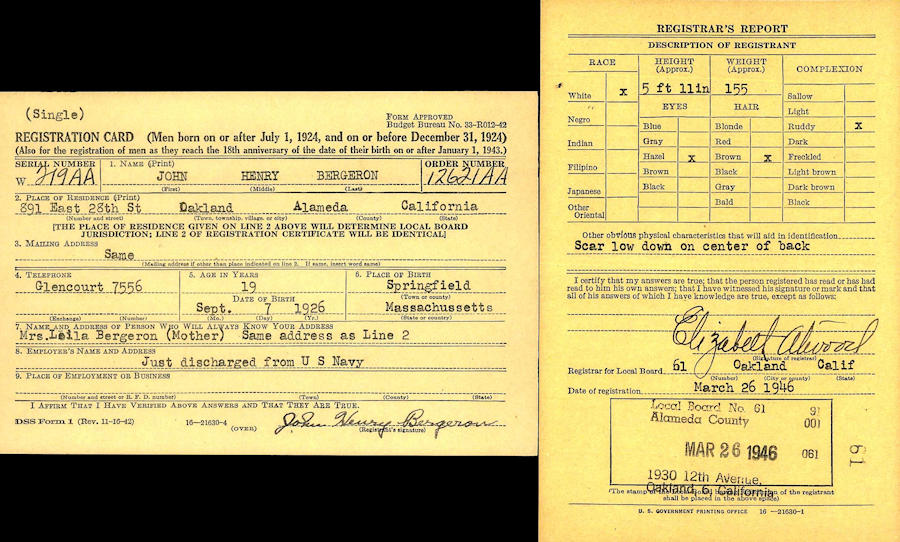 (Single)
FORM APPROVED
Budget Bureau No. 33-R012-42
REGISTRATION CARD (Men born on or after July 1, 1924, and on or before December 31, 1924)
(Also for the registration of men as they reach the 18th anniversary of the date of their birth on or after January 1, 1943.)
SERIAL NUMBER 1. NAME (Print) ORDER NUMBER
W 219AA JOHN HENRY BERGERON 12621AA
(First) (Middle) (Last)
2. PLACE OF RESIDENCE (Print)
891 East 28th St Oakland Alameda California
(Number and street) (Town, township, village, or city) (County) (State)
[THE PLACE OF RESIDENCE GIVEN ON LINE 2 ABOVE WILL DETERMINE LOCAL BOARD
JURISDICTION; LINE 2 OF REGISTRATION CERTIFICATE WILL BE IDENTICAL]
3. MAILING ADDRESS
Same
(Mailing address if other than place indicated on line 2. If same, insert word same)
4. TELEPHONE 5. AGE IN YEARS 6. PLACE OF BIRTH
Glencourt 7556 19 Springfield
DATE OF BIRTH (Town or county)
Sept. 7 1926 Massachussetts
(Exchange) (Number) (Mo.) (Day) (Yr.) (State or country)
7. NAME AND ADDRESS OF PERSON WHO WILL ALWAYS KNOW YOUR ADDRESS
Mrs. Leila Bergeron (Mother) Same address as Line 2
8. EMPLOYER'S NAME AND ADDRESS
Just discharged from U S Navy
9. PLACE OF EMPLOYMENT OR BUSINESS
(Number and street or R. F. D. number) (Town) (County) (State)
I AFFIRM THAT I HAVE VERIFIED ABOVE ANSWERS AND THAT THEY ARE TRUE.
DSS Form 1 (Rev. 11-16-42) 16—21630-4 (OVER) John Henry Bergeron
(Registrant's signature)
REGISTRAR'S REPORT
DESCRIPTION OF REGISTRANT
RACE HEIGHT (Approx.) WEIGHT (Approx.) COMPLEXION
White x 5 ft 11in 155 Sallow
EYES HAIR Light
Negro Blue Blonde Ruddy x
Indian Gray Red Dark
Hazel x Brown x Freckled
Filipino Brown Black Light brown
Japanese Black Gray Dark brown
Other Oriental Bald Black
Other obvious physical characteristics that will aid in identification
Scar low down on center of back
I certify that my answers are true; that the person registered has read or has had
read to him his own answers; that I have witnessed his signature or mark and that
all of his answers of which I have knowledge are true, except as follows:
Elizabeth Atwood
(Signature of registrar)
Registrar for Local Board 61 Oakland Calif
(Number) (City or county) (State)
Date of registration March 26 1946
Local Board No. 61 91
Alameda County 001
MAR 26 1946 061
61
1930 12th Avenue,
Oakland 6, California
(The stamp of the Local Board of the registrant
shall be placed in the above space)
U. S. GOVERNMENT PRINTING OFFICE 16—21630-1